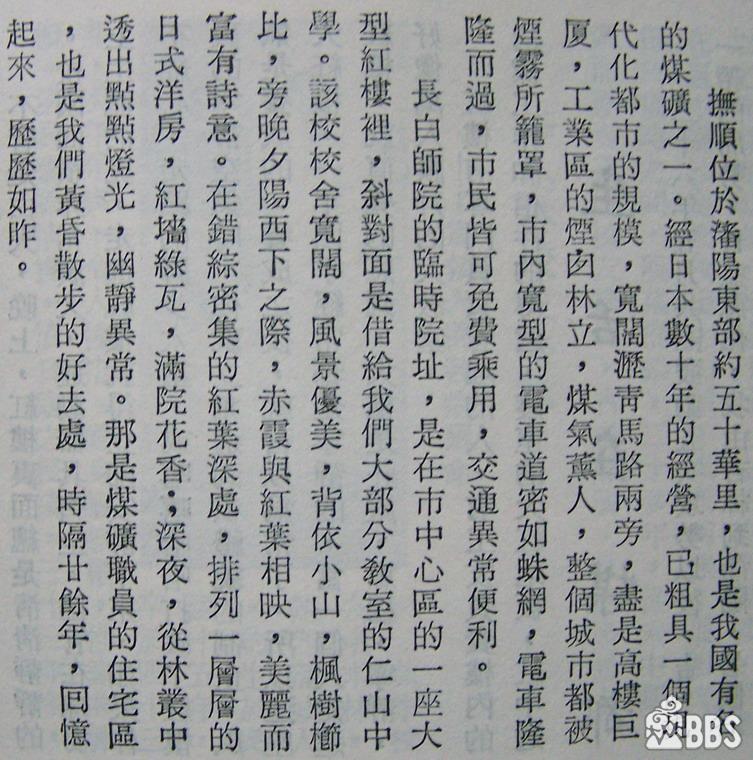 撫順位於瀋陽東部約五十華里，也是我國有名
的煤礦之一。經日本數十年的經營，已粗具一個現
代化都市的規模，寬闊瀝青馬路兩旁，盡是高樓巨
厦，工業區的煙囱林立，煤氣薰人，整個城市都被
煙霧所籠罩，市內寬型的電車道密如蛛網，電車隆
隆而過，市民皆可免費乘用，交通異常便利。
長白師院的臨時院址，是在市中心區的一座大
型紅樓裡，斜對面是借給我們大部分教室的仁山中
學。該校校舍寬闊，風景優美，背依小山，楓樹櫛
比，旁晚夕陽西下之際，赤霞與紅葉相映，美麗而
富有詩意。在錯綜密集的紅葉深處，排列一層層的
日式洋房，紅墻綠瓦，滿院花香；深夜，從林叢中
透出點點燈光，幽靜異常。那是煤礦職員的住宅區
，也是我們黃昏散步的好去處，時隔廿餘年，囘憶
起來，歷歷如昨。
BBS